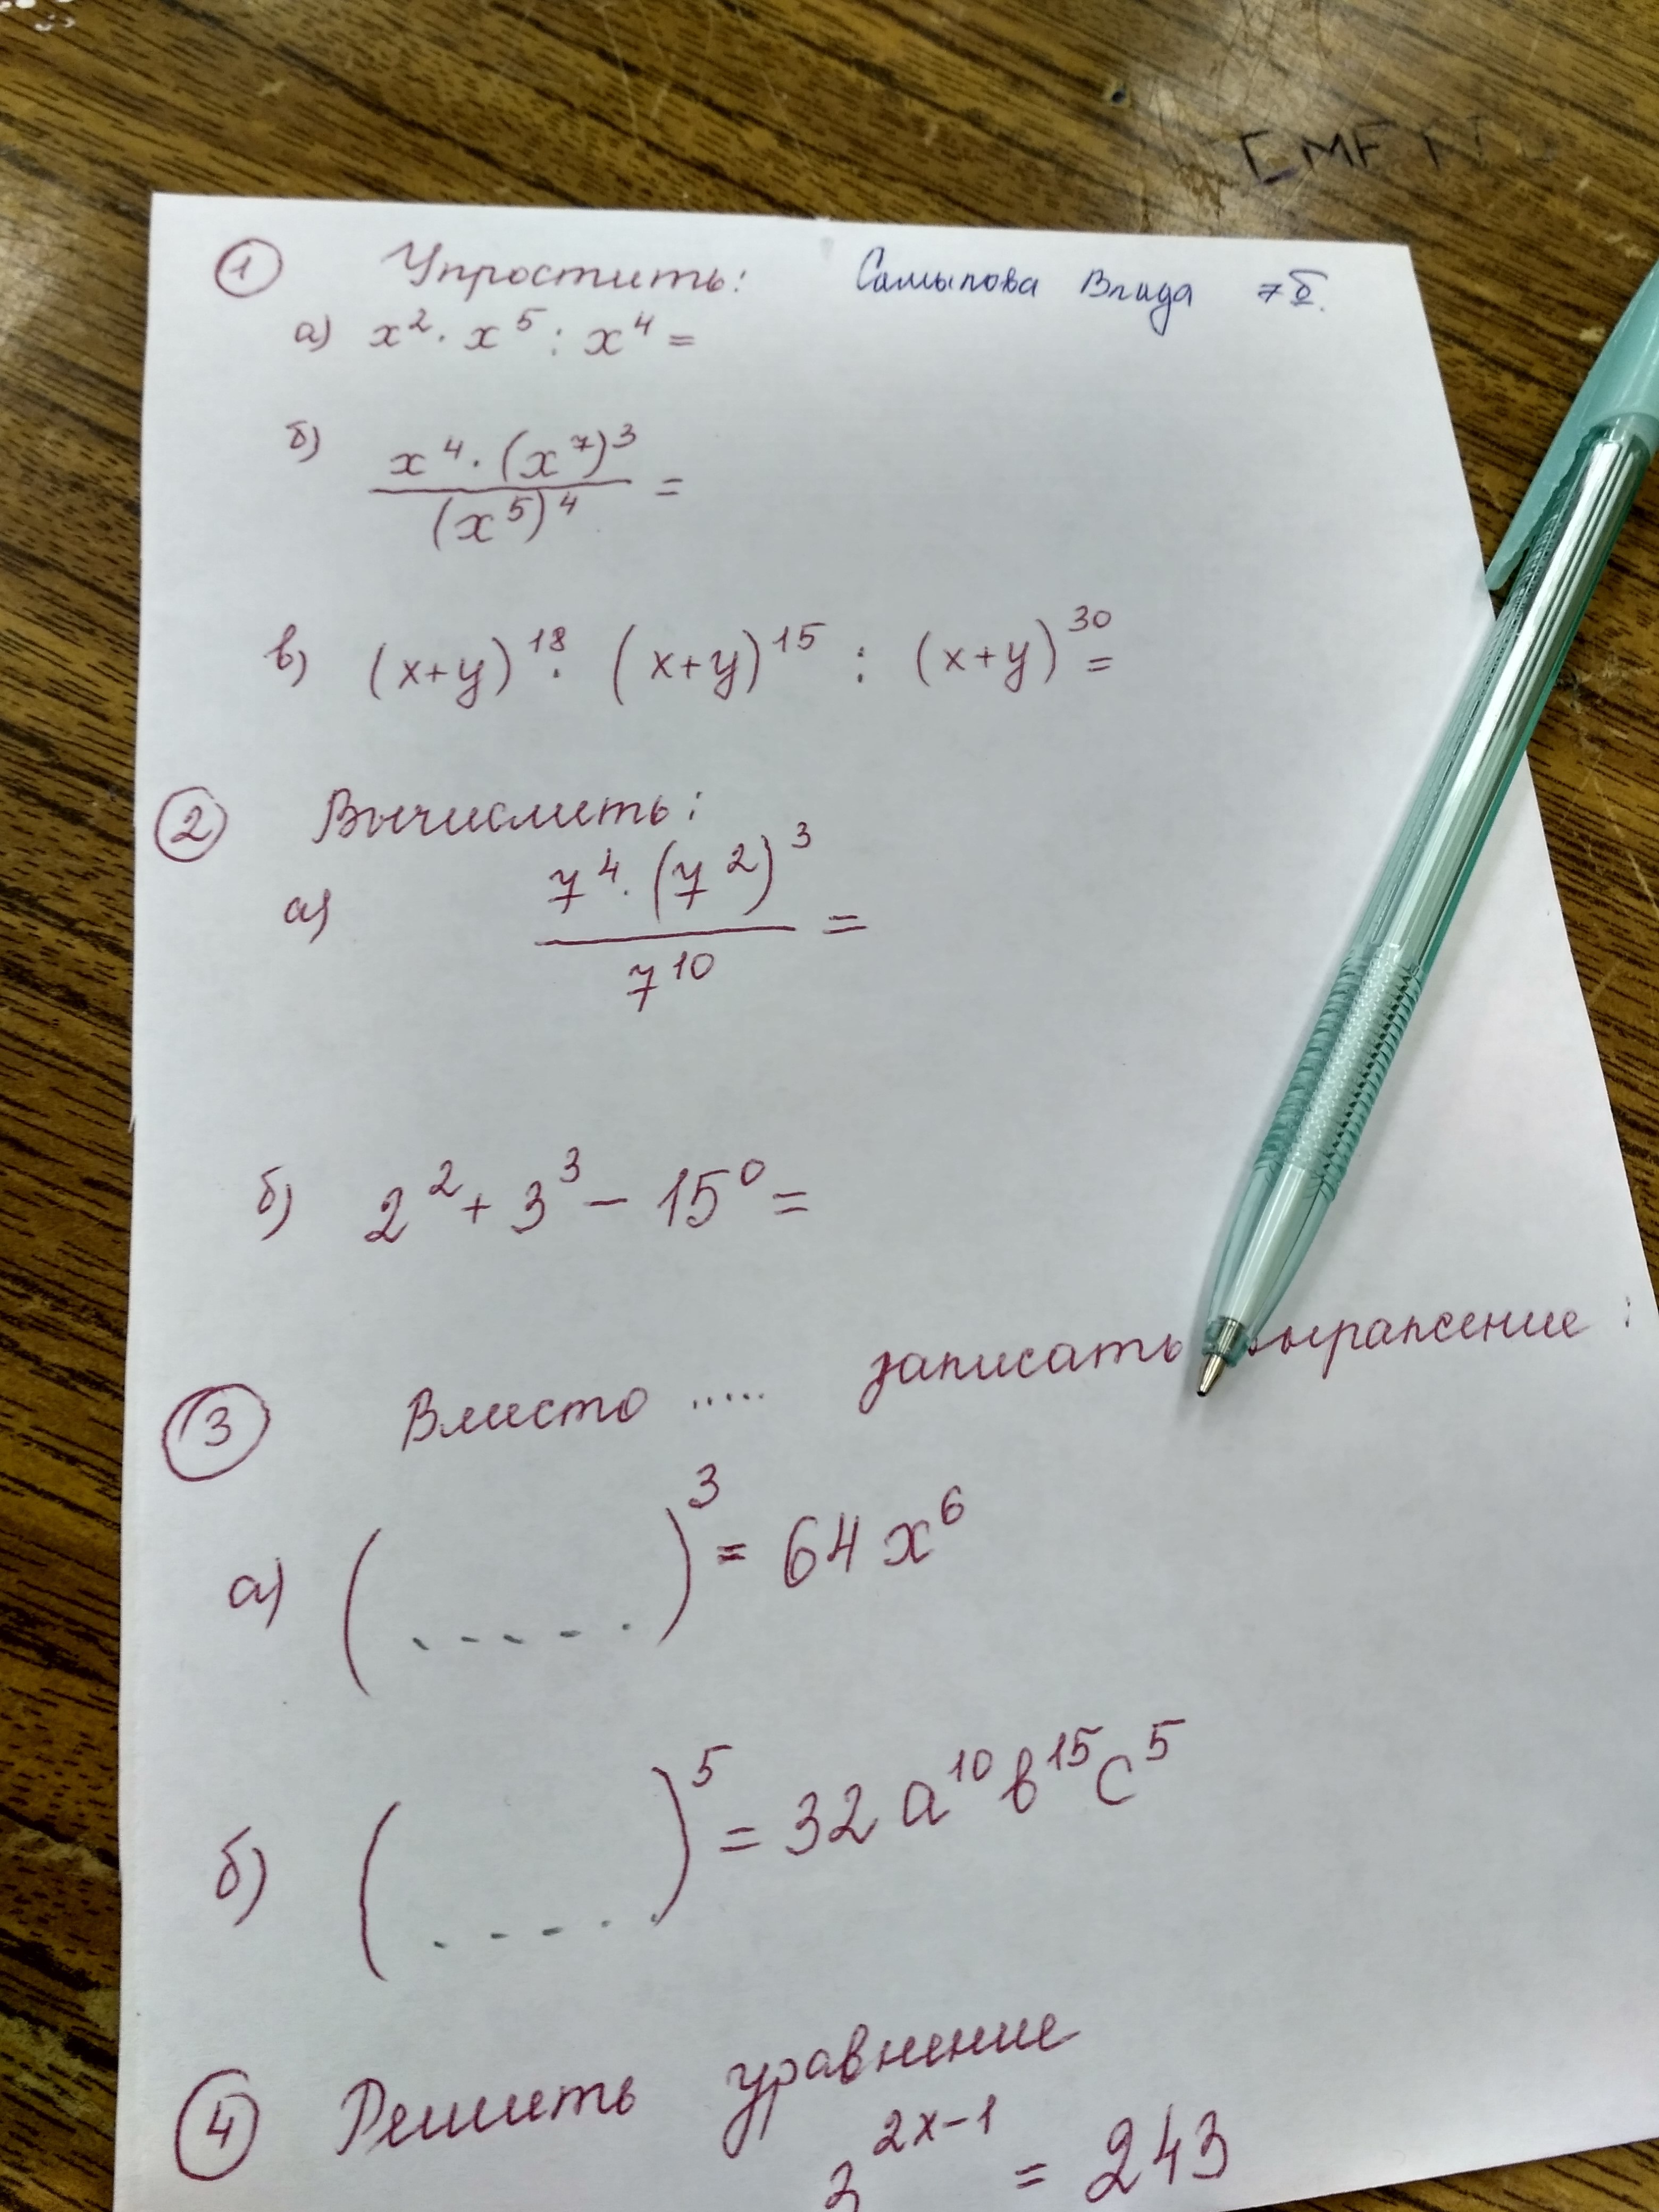 ① Упростить: Самылова Влада 7Б.
а) x² · x⁵ : x⁴ =
б) x⁴ · (x⁷)³
(x⁵)⁴ =
в) (x+y)¹⁸ · (x+y)¹⁵ : (x+y)³⁰ =
② Вычислить:
а) 7⁴ · (7²)³
7¹⁰ =
б) 2² + 3³ − 15⁰ =
③ Вместо ..... записать выражение:
а) (.....)³ = 64x⁶
б) (.....)⁵ = 32a¹⁰b¹⁵c⁵
④ Решить уравнение
3²ˣ⁻¹ = 243